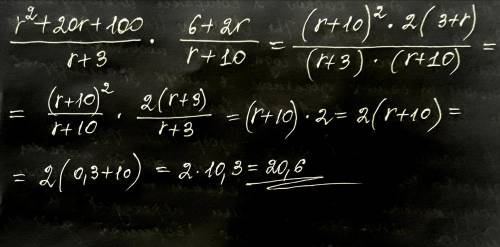 (r²+20r+100)/(r+3) · (6+2r)/(r+10) = ((r+10)²·2(3+r))/((r+3)·(r+10)) =
= (r+10)²/(r+10) · 2(r+3)/(r+3) = (r+10)·2 = 2(r+10) =
= 2(0,3+10) = 2·10,3 = 20,6